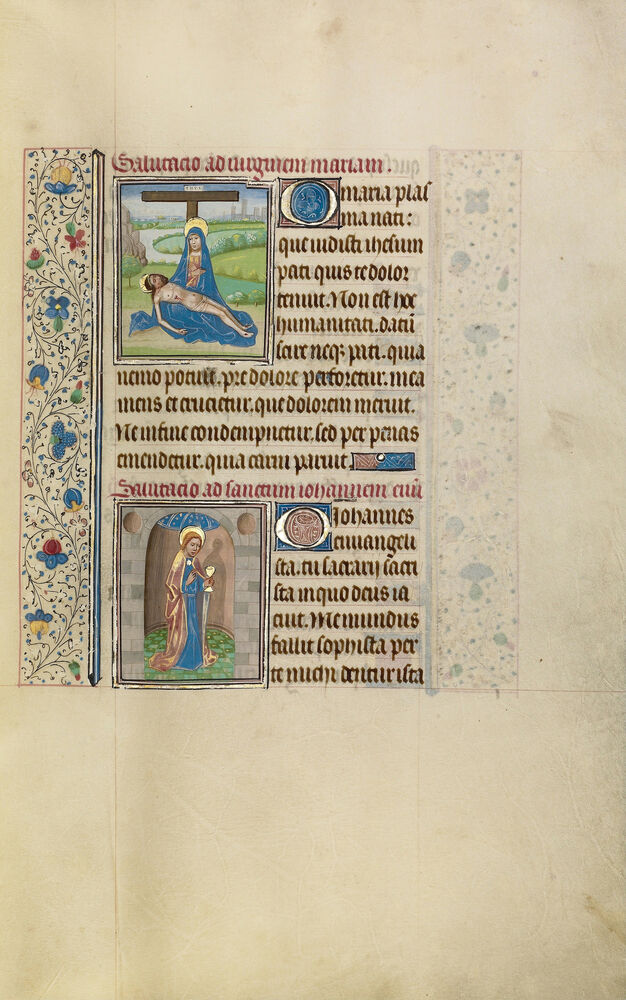 Salutacio ad virginem mariam.
O maria plas
ma nati:
que vidisti ihesum
pati quis te dolor
tenuit. Non est hoc
humanitati. datū
scire neq; pati. quia
nemo potuit. pre dolore perforetur. mea
mens et crucietur. que dolorem meruit.
Ne in fine condempnetur. sed per penas
emendetur. quia carni paruit.
Salutacio ad sanctum iohannem euū
O Iohannes
euuangeli
sta. tu sacrarij sacri
sta in quo deus ia
cuit. Me mundus
fallit sophista per
te michi dentur ista